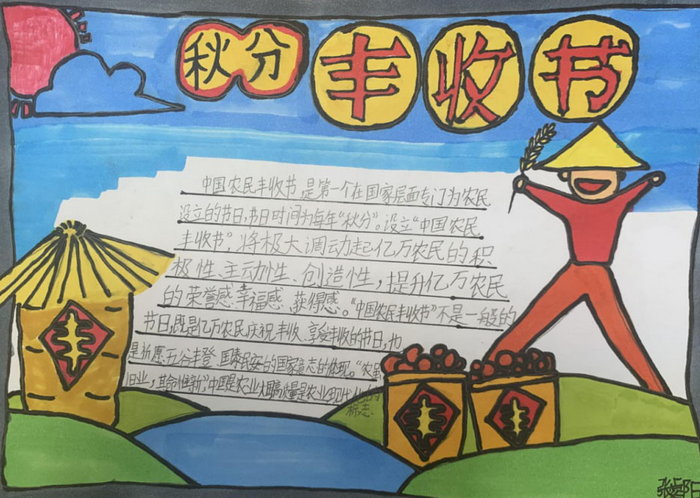 秋分
丰收书
中国农民丰收节,是第一个在国家层面专门为农民
设立的节日,节日时间为每年“秋分”。设立“中国农民
丰收节”,将极大调动起亿万农民的积
极性、主动性、创造性,提升亿万农民
的荣誉感、幸福感、获得感。“中国农民丰收节”不是一般的
节日,既是亿万农民庆祝丰收、享受丰收的节日,也
是祈愿五谷丰登、国泰民安的
旧业,其命维新”中国是农业大国
标志
丰
丰
丰